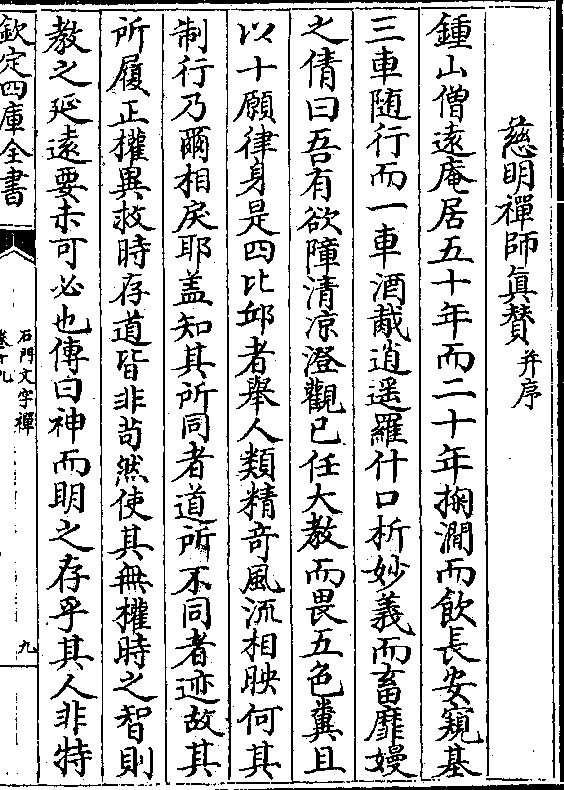 慈明禪師真賛并序
鍾山僧逺庵居五十年而二十年掬澗而飲長安窺基
三車随行而一車酒胾逍遥羅什口析妙義而畜靡嫚
之倩曰吾有欲障清凉澄觀已任大教而畏五色糞且
以十願律身是四比邱者舉人類精竒風流相映何其
制行乃爾相戾耶盖知其所同者道所不同者迹故其
所履正權異救時存道皆非苟然使其無權時之智則
教之延逺要未可必也傳曰神而明之存乎其人非特
欽定四庫全書
石門文字禪
卷十九
九